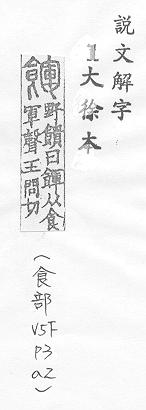 説文解字
1大徐本
野饋曰餫从食
軍聲王問切
(食部
V5F
P3
a2)